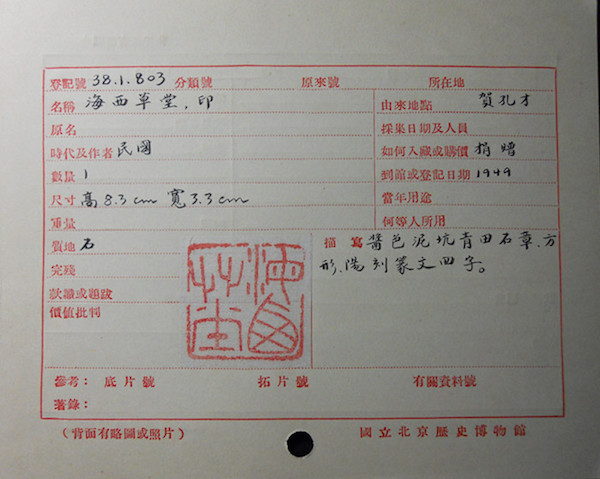 登記號 38.1.803 分類號 原來號 所在地
名稱 海西草堂,印 由來地點 賀孔才
原名 採集日期及人員
時代及作者 民國 如何入藏或購價 捐贈
數量 1 到館或登記日期 1949
尺寸 高8.3cm 寬3.3cm 當年用途
重量 何等人所用
質地 石 描寫 醬色泥坑青田石章.方
完殘 形.陽刻篆文四字。
款識或題跋
價值批判
海西草堂
參考: 底片號 拓片號 有關資料號
著錄:
(背面有略圖或照片) 國立北京歷史博物館